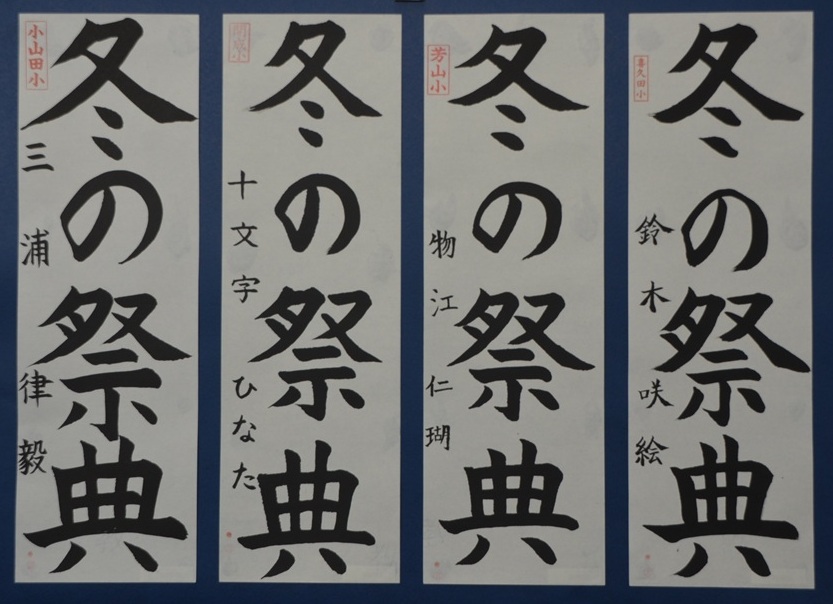 喜久田小
冬の祭典
鈴木咲絵
芳山小
冬の祭典
物江仁瑚
冬の祭典
十文字ひなた
小山田小
冬の祭典
三浦律毅